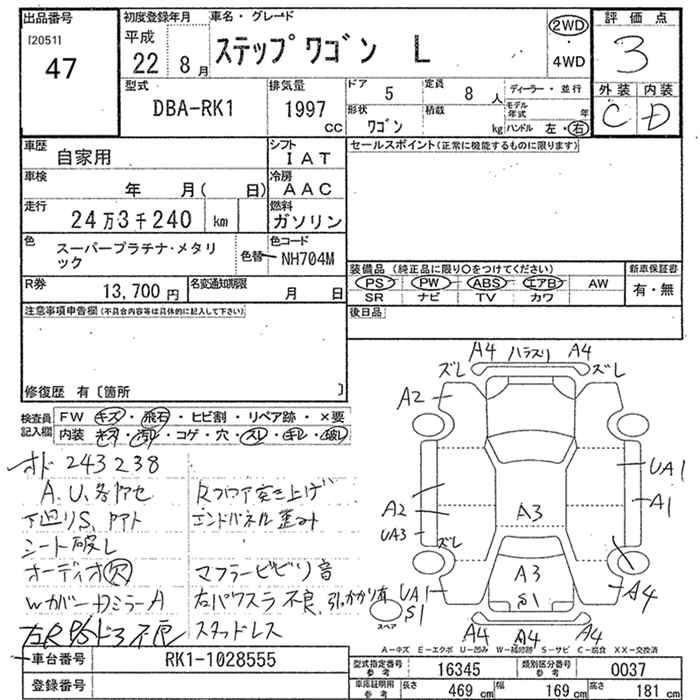 出品番号
[2051]
47
初度登録年月
平成
22 8月
車名・グレード
ステップワゴン L
2WD
4WD
評価点
3
外装 内装
C D
型式
DBA-RK1
排気量
1997 cc
ドア 5
定員 8 人
形状 ワゴン
積載 kg
ディーラー・並行
モデル年式 年
ハンドル 左・右
車歴
自家用
シフト
IAT
車検
年 月( 日)
冷房
AAC
走行
24万3千240 km
燃料
ガソリン
色
スーパープラチナ・メタリック
色替
色コード
NH704M
R券
13,700 円
名変通知期限
月 日
セールスポイント(正常に機能するものに限ります)
装備品 (純正品に限り○をつけてください)
PS PW ABS エアB AW
SR ナビ TV カワ
新車保証書
有・無
後日品
注意事項申告欄(不具合内容等は具体的に記入して下さい)
修復歴 有〔箇所 〕
検査員記入欄
FW キズ・飛石・ヒビ割・リペア跡・×要
内装 キズ・汚レ・コゲ・穴・スレ・キレ・破レ
オド 243238
A.U.各アセ
下廻りS,
シート破レ
オーディオ欠
WカバーDミラーA
スタッドレス
エンドパネル歪み
マフラービビリ音
右パワスラ不良
A4 ハラスリ A4
ズレ ズレ
A2
UA1
A2
A1
A3
UA3 ズレ
A3
S1
UA1
A4
S1
スペア
A4 A4 A4
A―キズ E―エクボ U―凹み W―補修跡 S―サビ C―腐食 XX―交換済
車台番号
RK1-1028555
登録番号
型式指定番号 参考
16345
類別区分番号 参考
0037
車庫証明用 参考
長さ 469 cm
幅 169 cm
高さ 181 cm